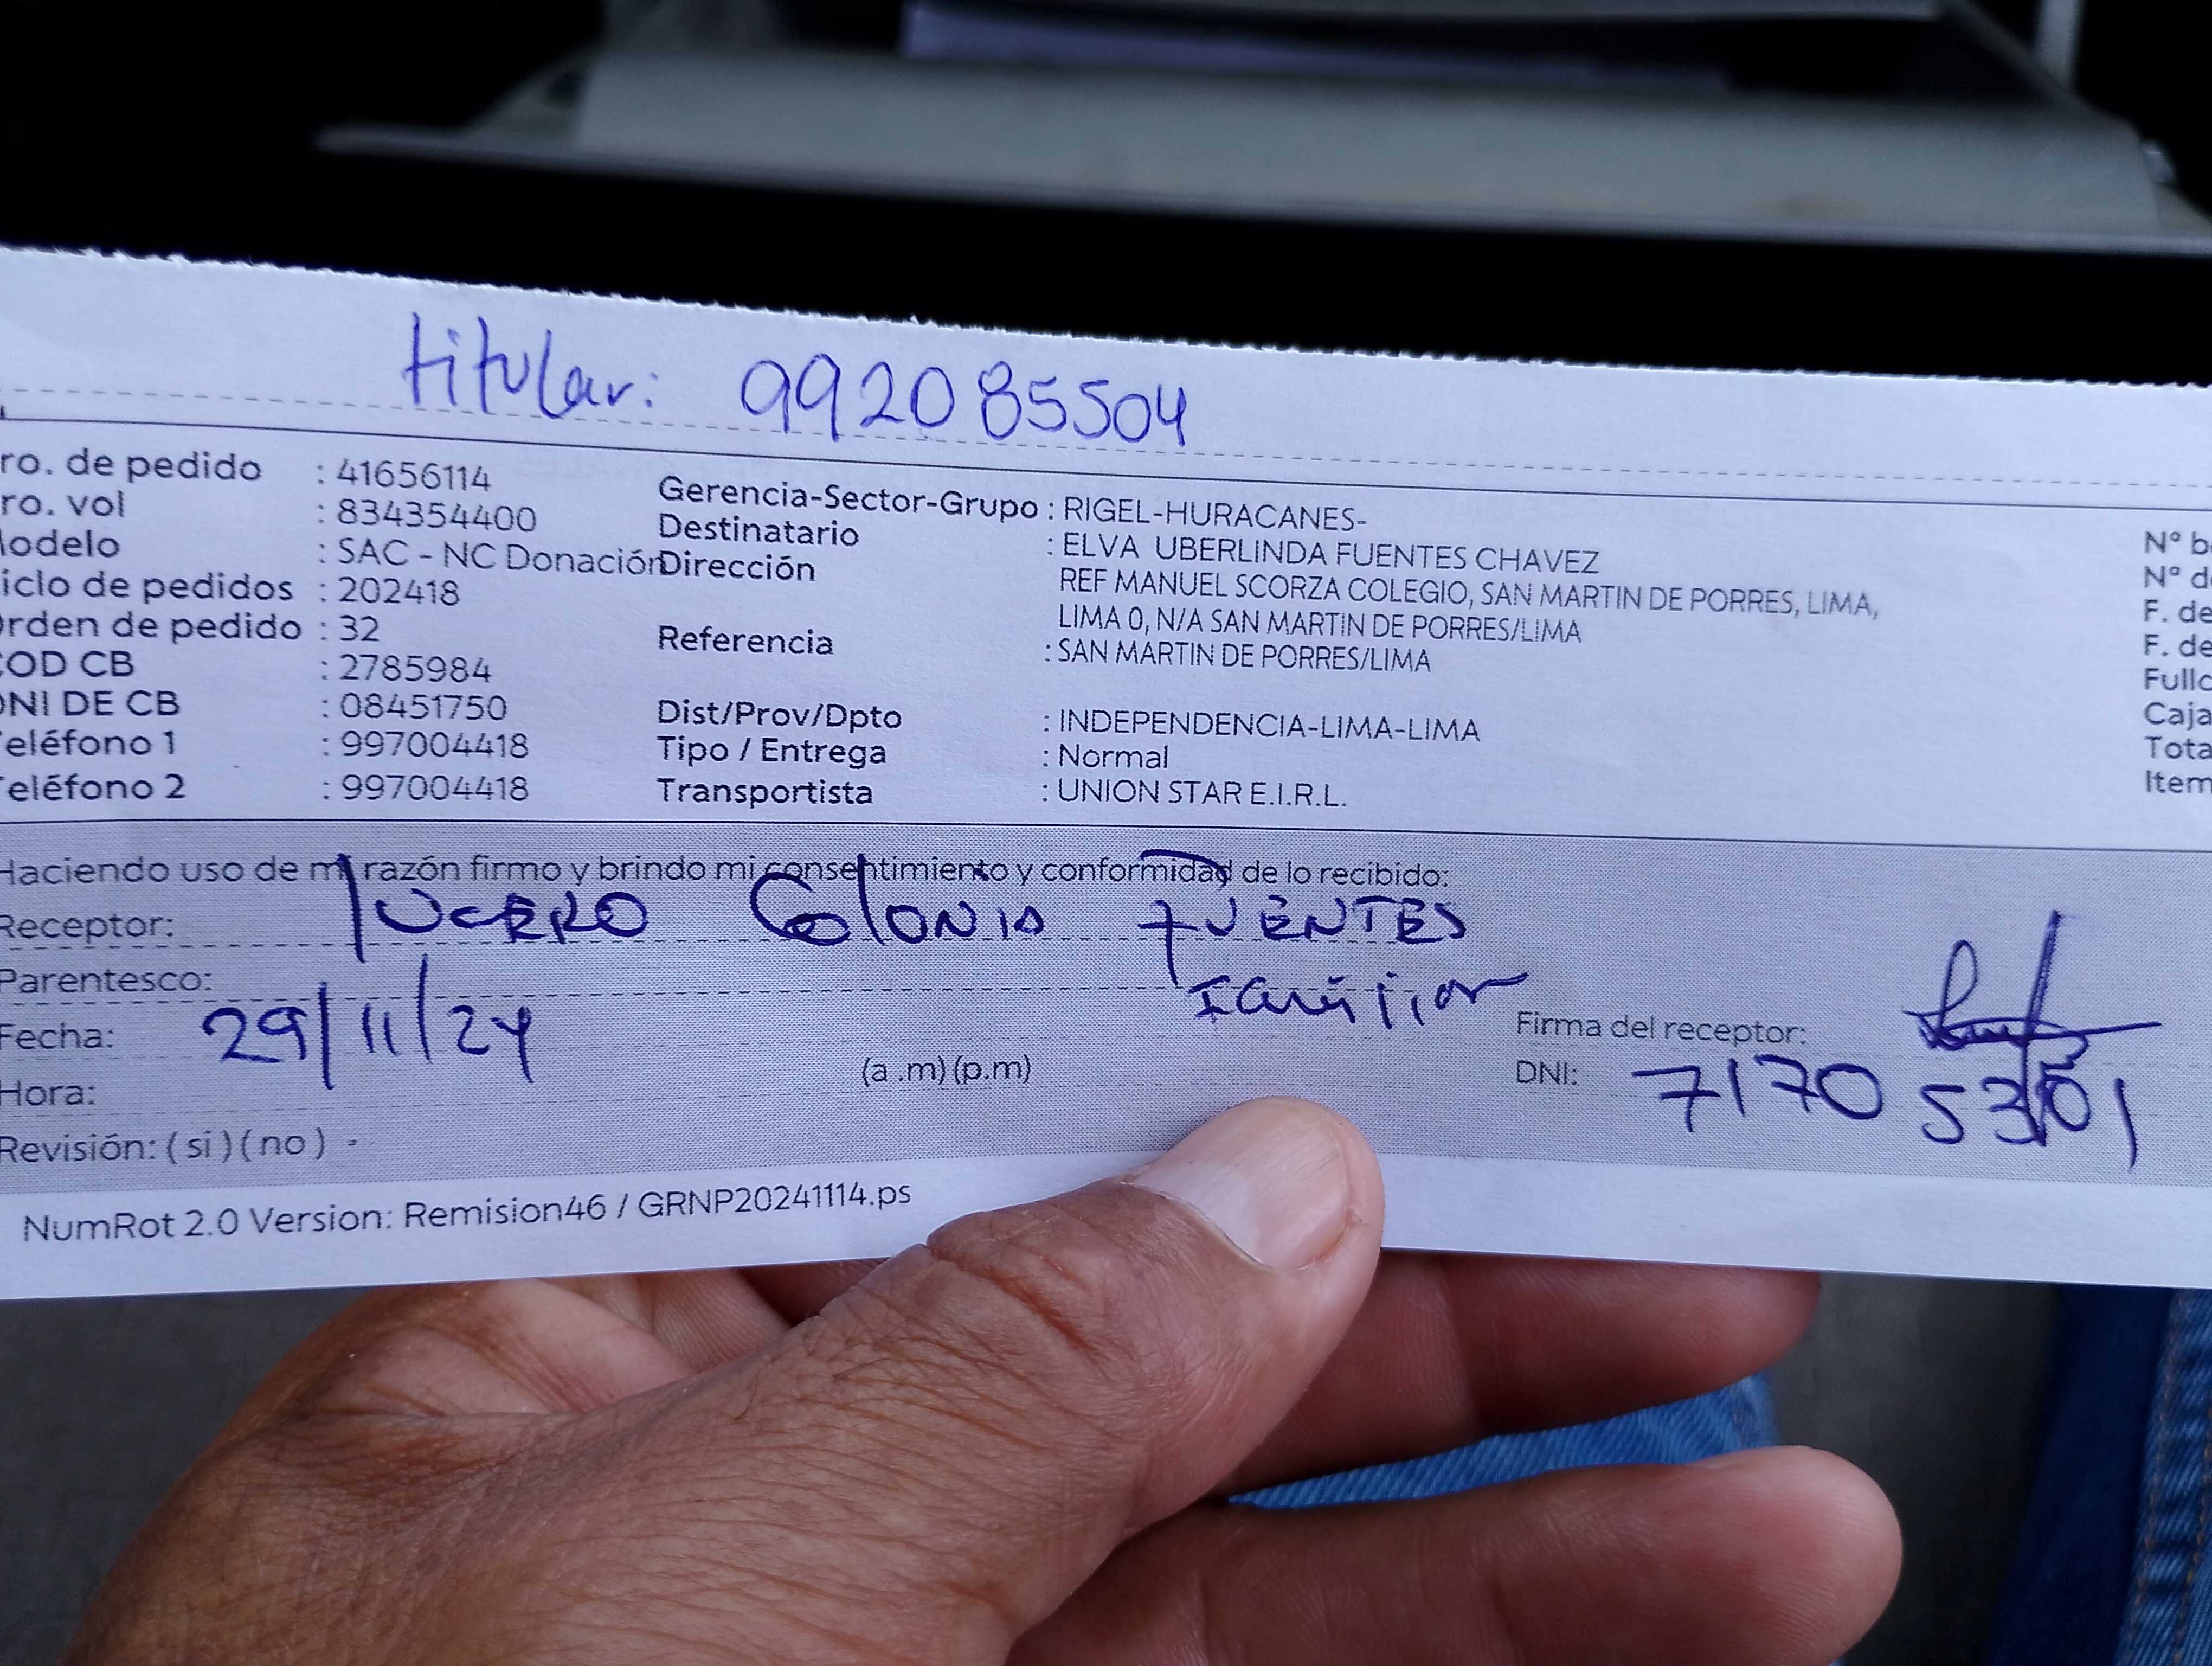 titular: 992085504
ro. de pedido : 41656114
ro. vol : 834354400
odelo : SAC - NC Donación
iclo de pedidos : 202418
rden de pedido : 32
OD CB : 2785984
NI DE CB : 08451750
eléfono 1 : 997004418
eléfono 2 : 997004418
Gerencia-Sector-Grupo : RIGEL-HURACANES-
Destinatario : ELVA UBERLINDA FUENTES CHAVEZ
Dirección REF MANUEL SCORZA COLEGIO, SAN MARTIN DE PORRES, LIMA,
LIMA 0, N/A SAN MARTIN DE PORRES/LIMA
Referencia : SAN MARTIN DE PORRES/LIMA
Dist/Prov/Dpto : INDEPENDENCIA-LIMA-LIMA
Tipo / Entrega : Normal
Transportista : UNION STAR E.I.R.L.
N° b
N° d
F. de
F. de
Fullc
Caja
Tota
Item
Haciendo uso de mi razón firmo y brindo mi consentimiento y conformidad de lo recibido:
Receptor: lUCERO COlONIA FUENTES
Parentesco: Familiar
Fecha: 29/11/24
Hora: (a .m) (p.m)
Revisión: ( si ) ( no ) -
Firma del receptor:
DNI: 7170 53
NumRot 2.0 Version: Remision46 / GRNP20241114.ps